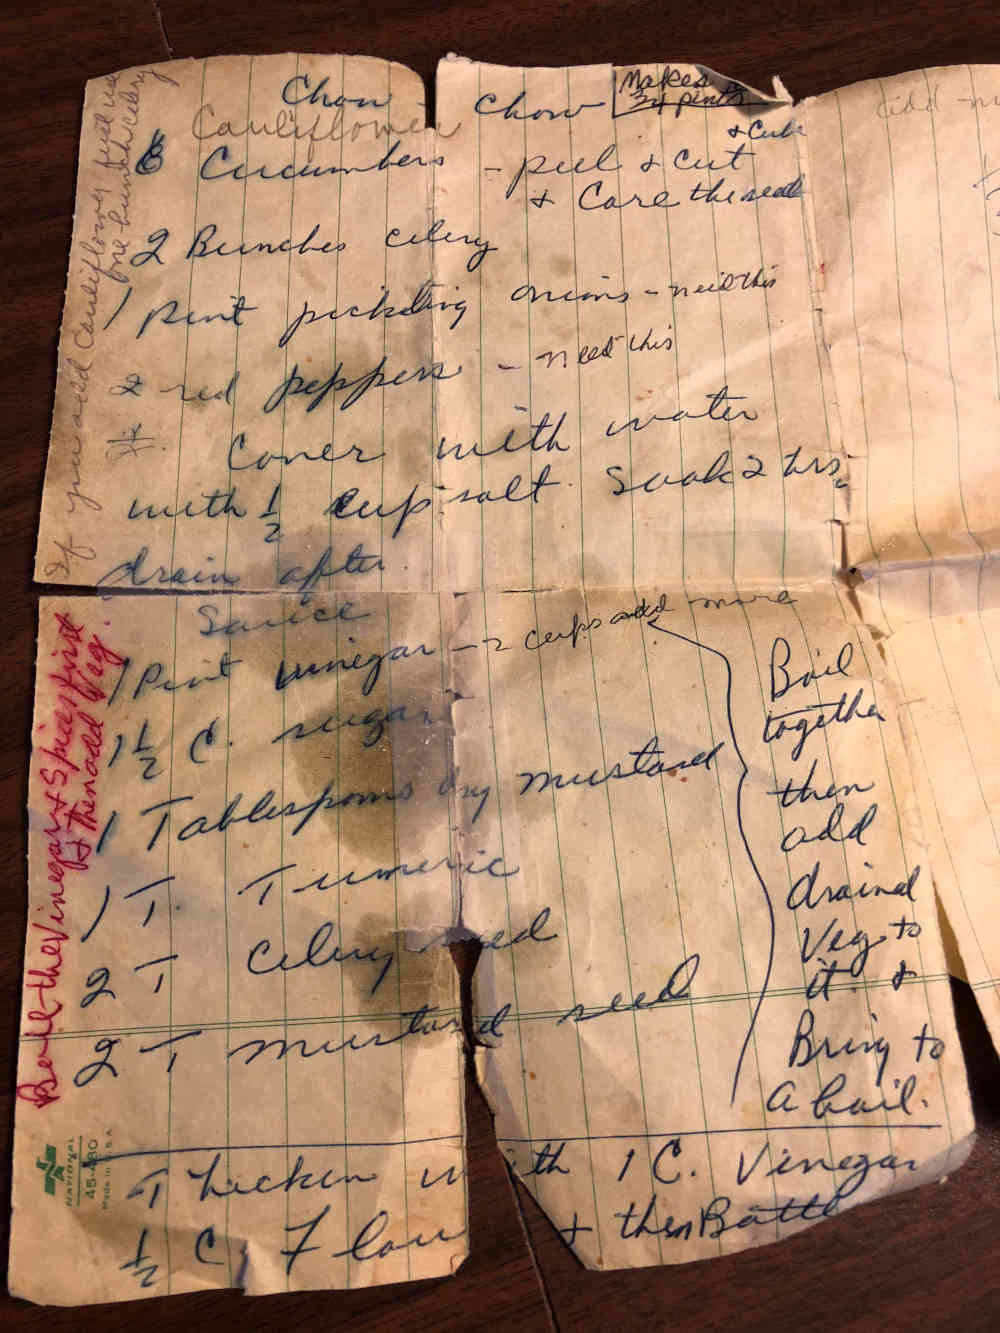 Chow - Chow
Makes
3 1/2 pints
Cauliflower
+ Cube
6 Cucumbers - peel + cut
+ Core the seeds
2 Bunches celery
1 pint pickling onions - need this
2 red peppers - need this
Cover with water
with 1/2 cup salt. Soak 2 hrs,
drain after.
Sauce
1 Pint vinegar - 2 cups add more
1 1/2 C. sugar
1 Tablespoons dry mustard
1 T. Tumeric
2 T Celery seed
2 T mustard seed
Boil
together
then
add
drained
Veg. to
it. +
Bring to
a boil.
Thicken with 1 C. Vinegar
1/2 C. Flour + then Bottle
If you add Cauliflower just use
one bunch celery
Boil the Vinegar + Spices first
+ then add Veg.
add
NATIONAL
45-480
Made in U.S.A.